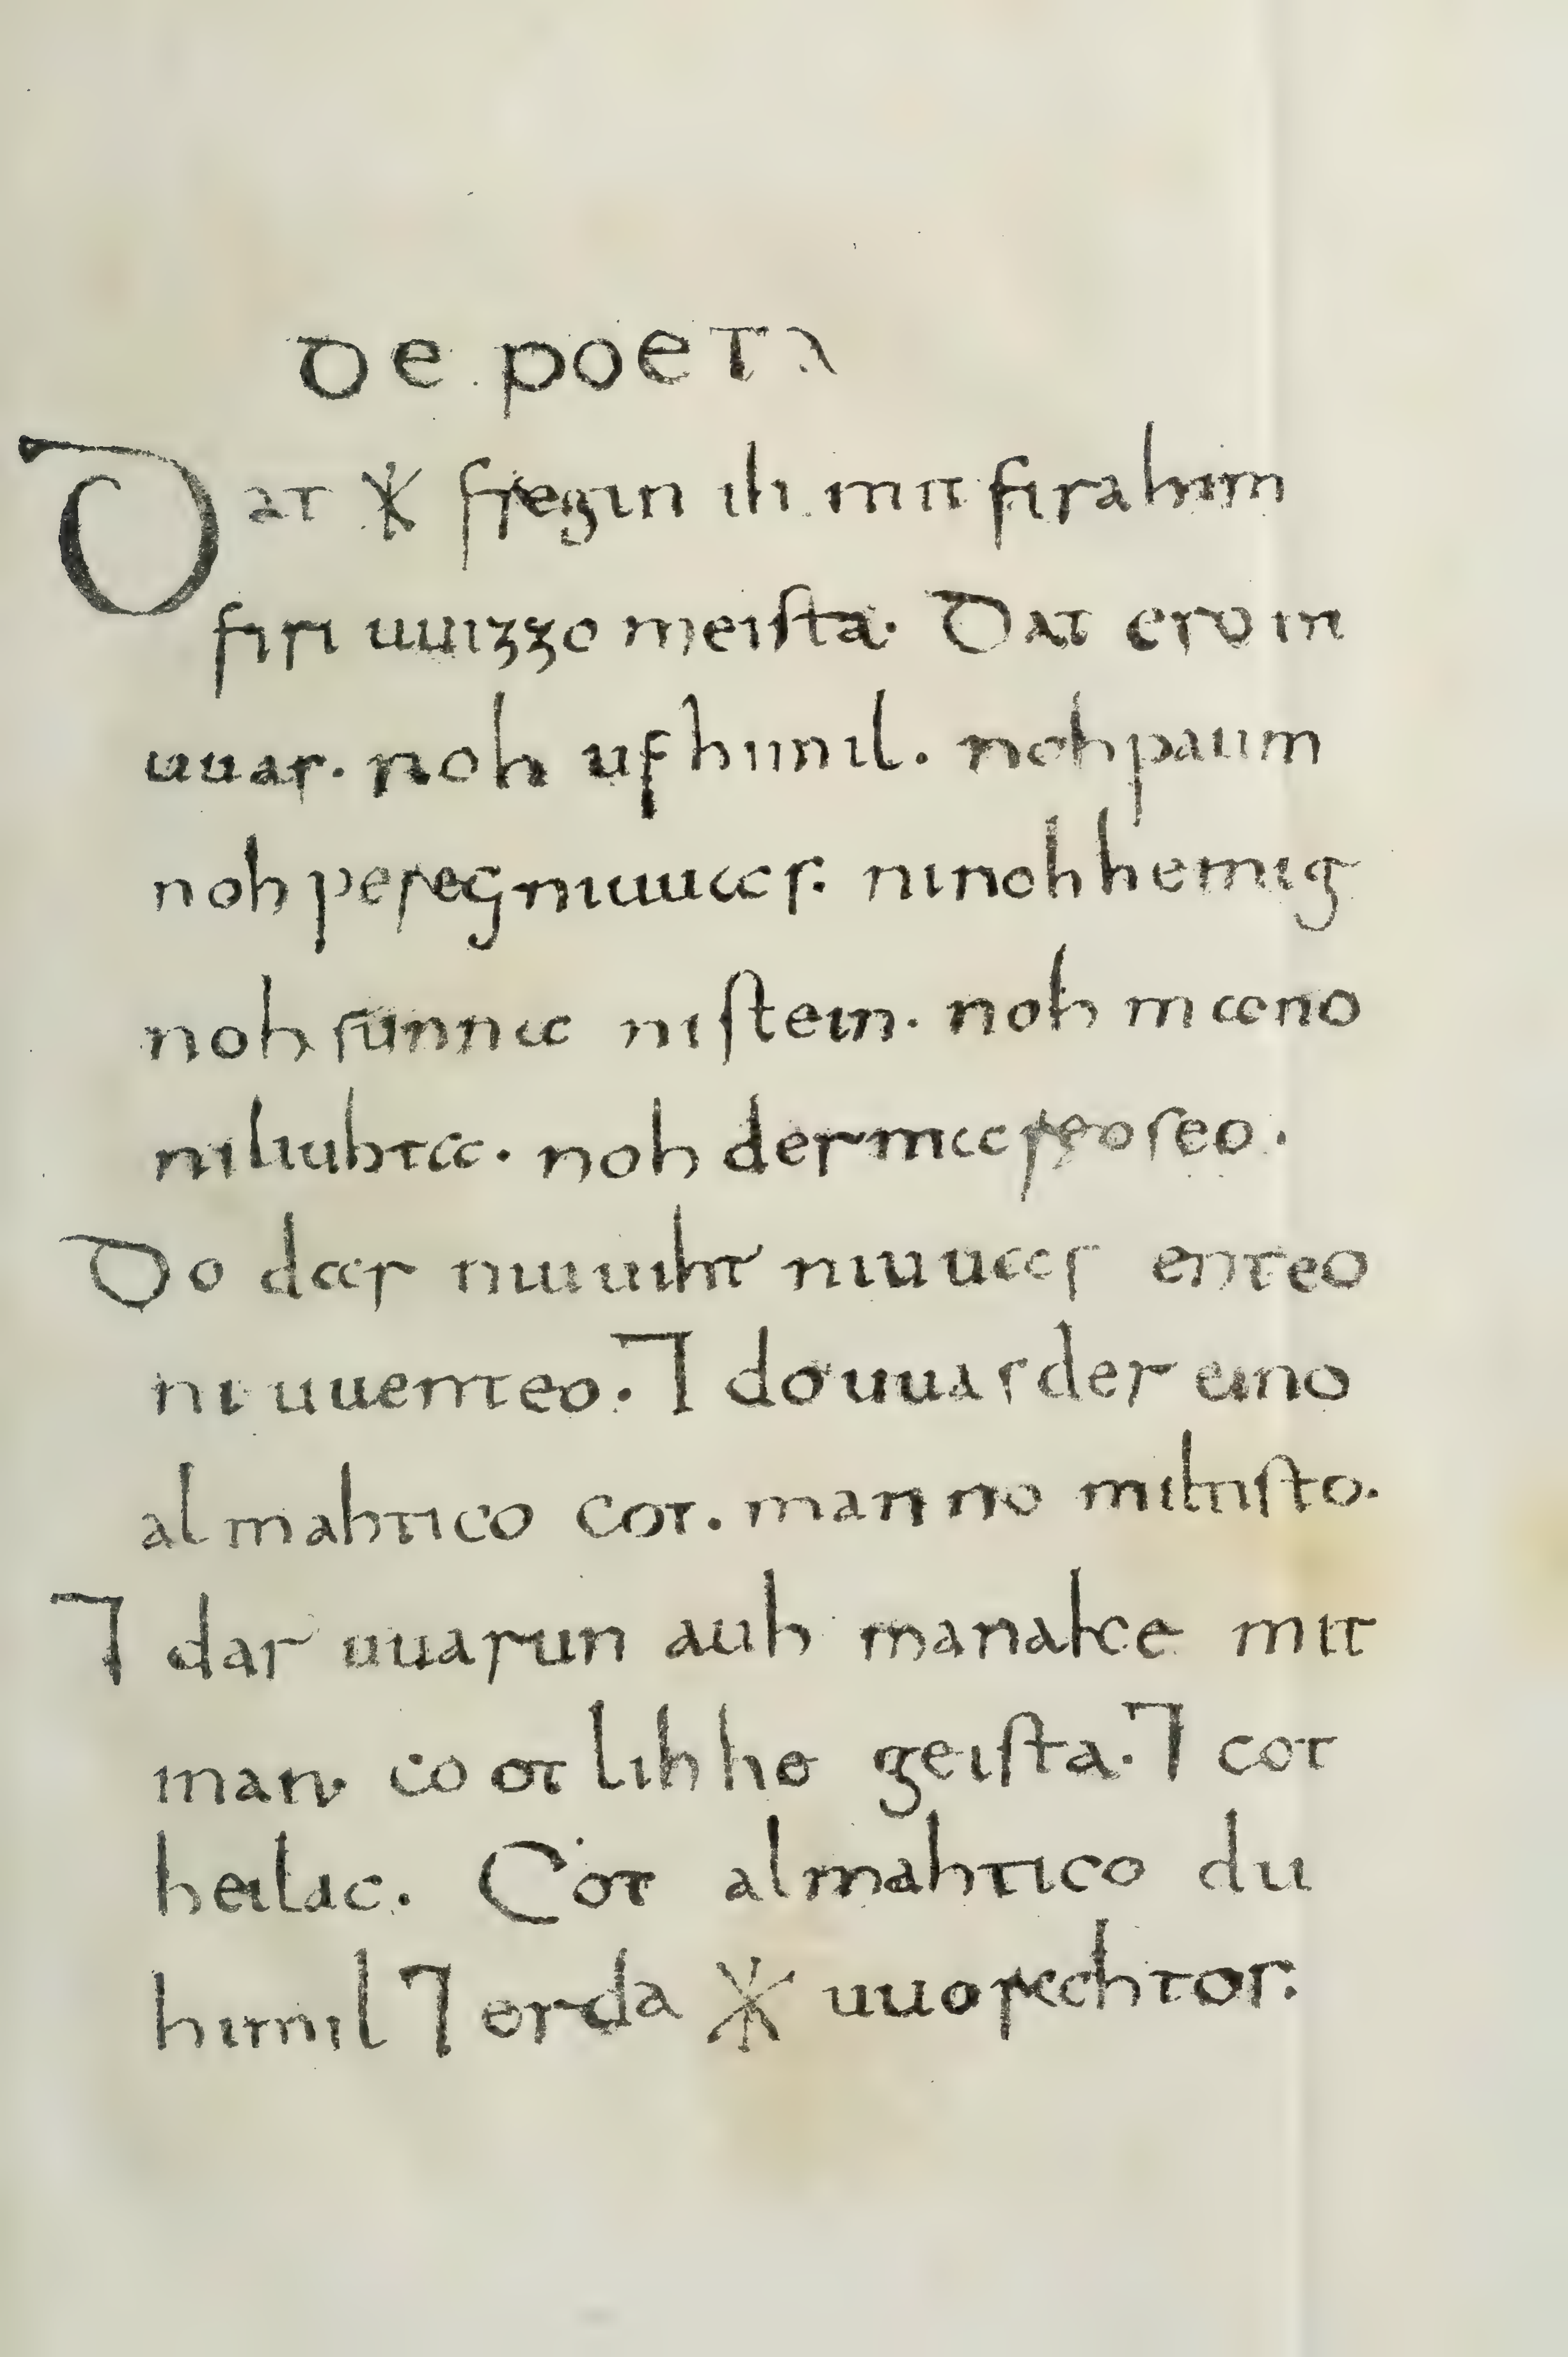 De poeta
Dat ᚼ fregin ih mit firahim
firi uuizzo meista. Dat ero ni
uuas. noh ufhimil. noh paum
noh pereg niuuas. ninohheinig
noh sunna nistein. noh mano
niliuhta. noh dermareoseo.
Do dar niuuiht niuuas enteo
ni uuenteo. ⁊ do uuas der eino
almahtico cot. manno miltisto.
⁊ dar uuarun auh manake mit
man. cootlihho geista. ⁊ cot
heilac. Cot almahtico du
himil ⁊ erda ᚼ uuorahtos.